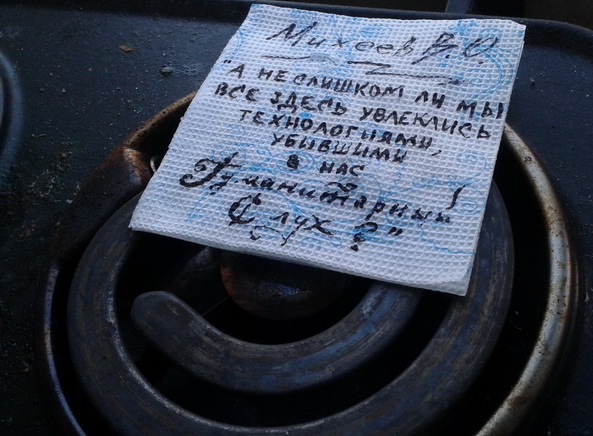 Михеев В.О.
"А НЕ СЛИШКОМ ЛИ МЫ
ВСЕ ЗДЕСЬ УВЛЕКЛИСЬ
ТЕХНОЛОГИЯМИ,
УБИВШИМИ
В НАС
Гуманитарный
Слух?"